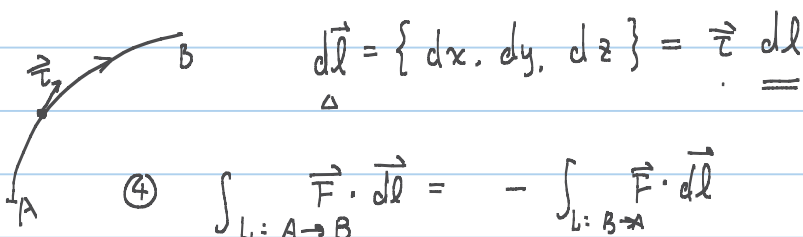 B
d\vec{l} = { dx, dy, dz } = \vec{τ} dl
\vec{τ}
A
④ ∫_{L: A→B} \vec{F} · \vec{dl} = - ∫_{L: B→A} \vec{F} · \vec{dl}